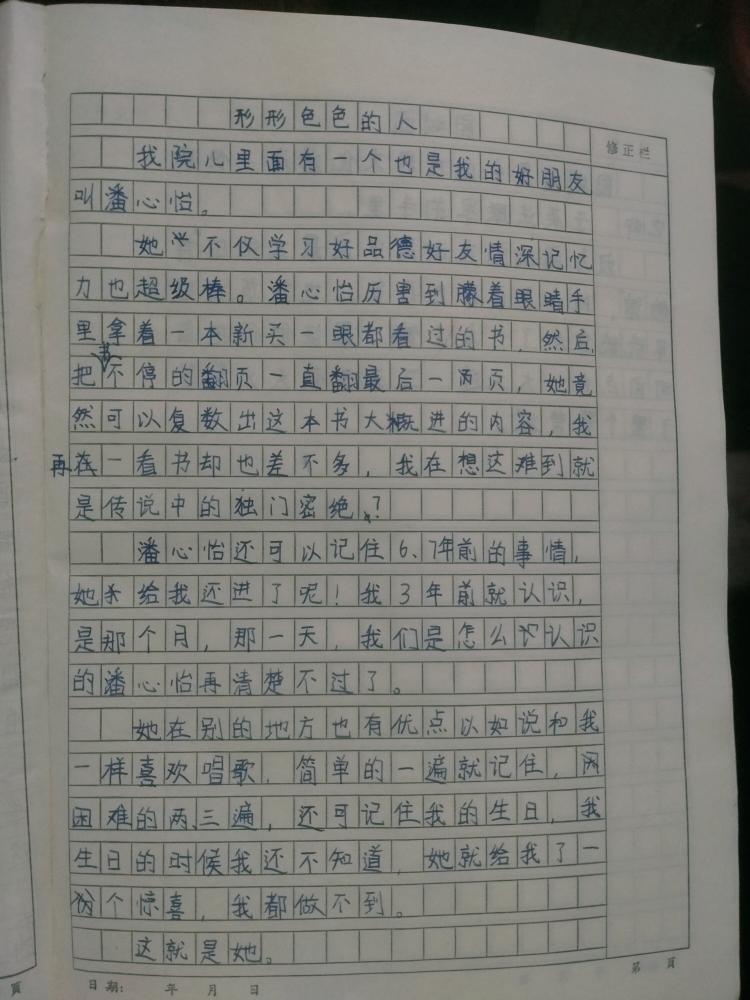 形形色色的人
修正栏
我院儿里面有一个也是我的好朋友
叫潘心怡。
她不仅学习好品德好友情深记忆
力也超级棒。潘心怡厉害到朦着眼睛手
里拿着一本新买一眼都看过的书，然后
把书不停的翻页一直翻最后一两页，她竟
然可以复数出这本书大概进的内容，我
再一看书却也差不多，我在想这难到就
是传说中的独门密绝？
潘心怡还可以记住6、7年前的事情，
她给我还进了呢！我3年前就认识，
是那个月，那一天，我们是怎么认识
的潘心怡再清楚不过了。
她在别的地方也有优点以如说和我
一样喜欢唱歌，简单的一遍就记住，
困难的两三遍，还可记住我的生日，我
生日的时候我还不知道，她就给我了一
个惊喜，我都做不到。
这就是她。
頁 日期： 年 月 日 第 頁